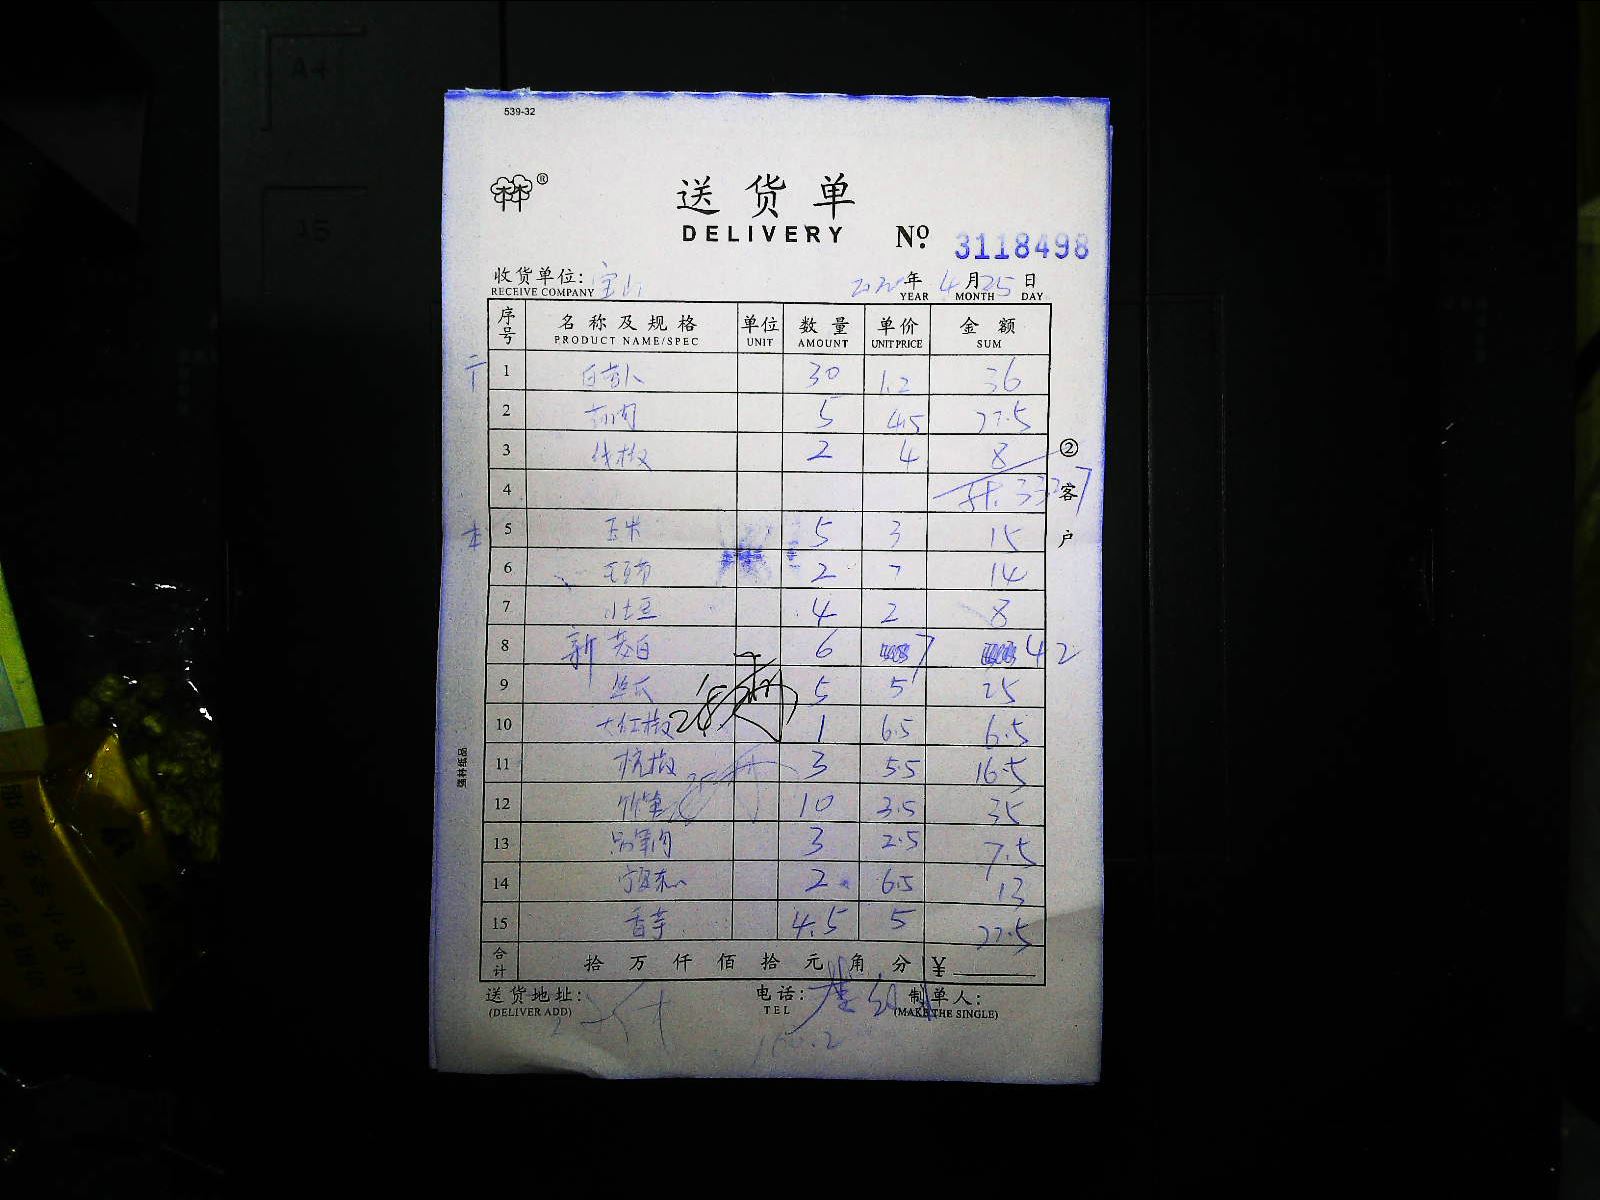 A4
15
539-32
®
送货单
DELIVERY
Nº. 3118498
收货单位: 宝山 2020年 4月25日
RECEIVE COMPANY YEAR MONTH DAY
序号 名称及规格 单位 数量 单价 金额
PRODUCT NAME/SPEC UNIT AMOUNT UNIT PRICE SUM
1 白萝卜 30 1.2 36
2 5 4.5 22.5
3 线椒 2 4 8
4
5 玉米 5 3 15
6 2 7 14
7 小土豆 4 2 8
8 新 茭白 6 7 42
9 5 5 25
10 大红椒 1 6.5 6.5
11 杭椒 3 5.5 16.5
12 竹笋 10 3.5 35
13 3 2.5 7.5
14 2 6.5 13
15 香芋 4.5 5 22.5
合计 拾 万 仟 佰 拾 元 角 分 ¥
②客户
强林纸品
送货地址: 电话: 制单人:
(DELIVER ADD) TEL (MAKE THE SINGLE)